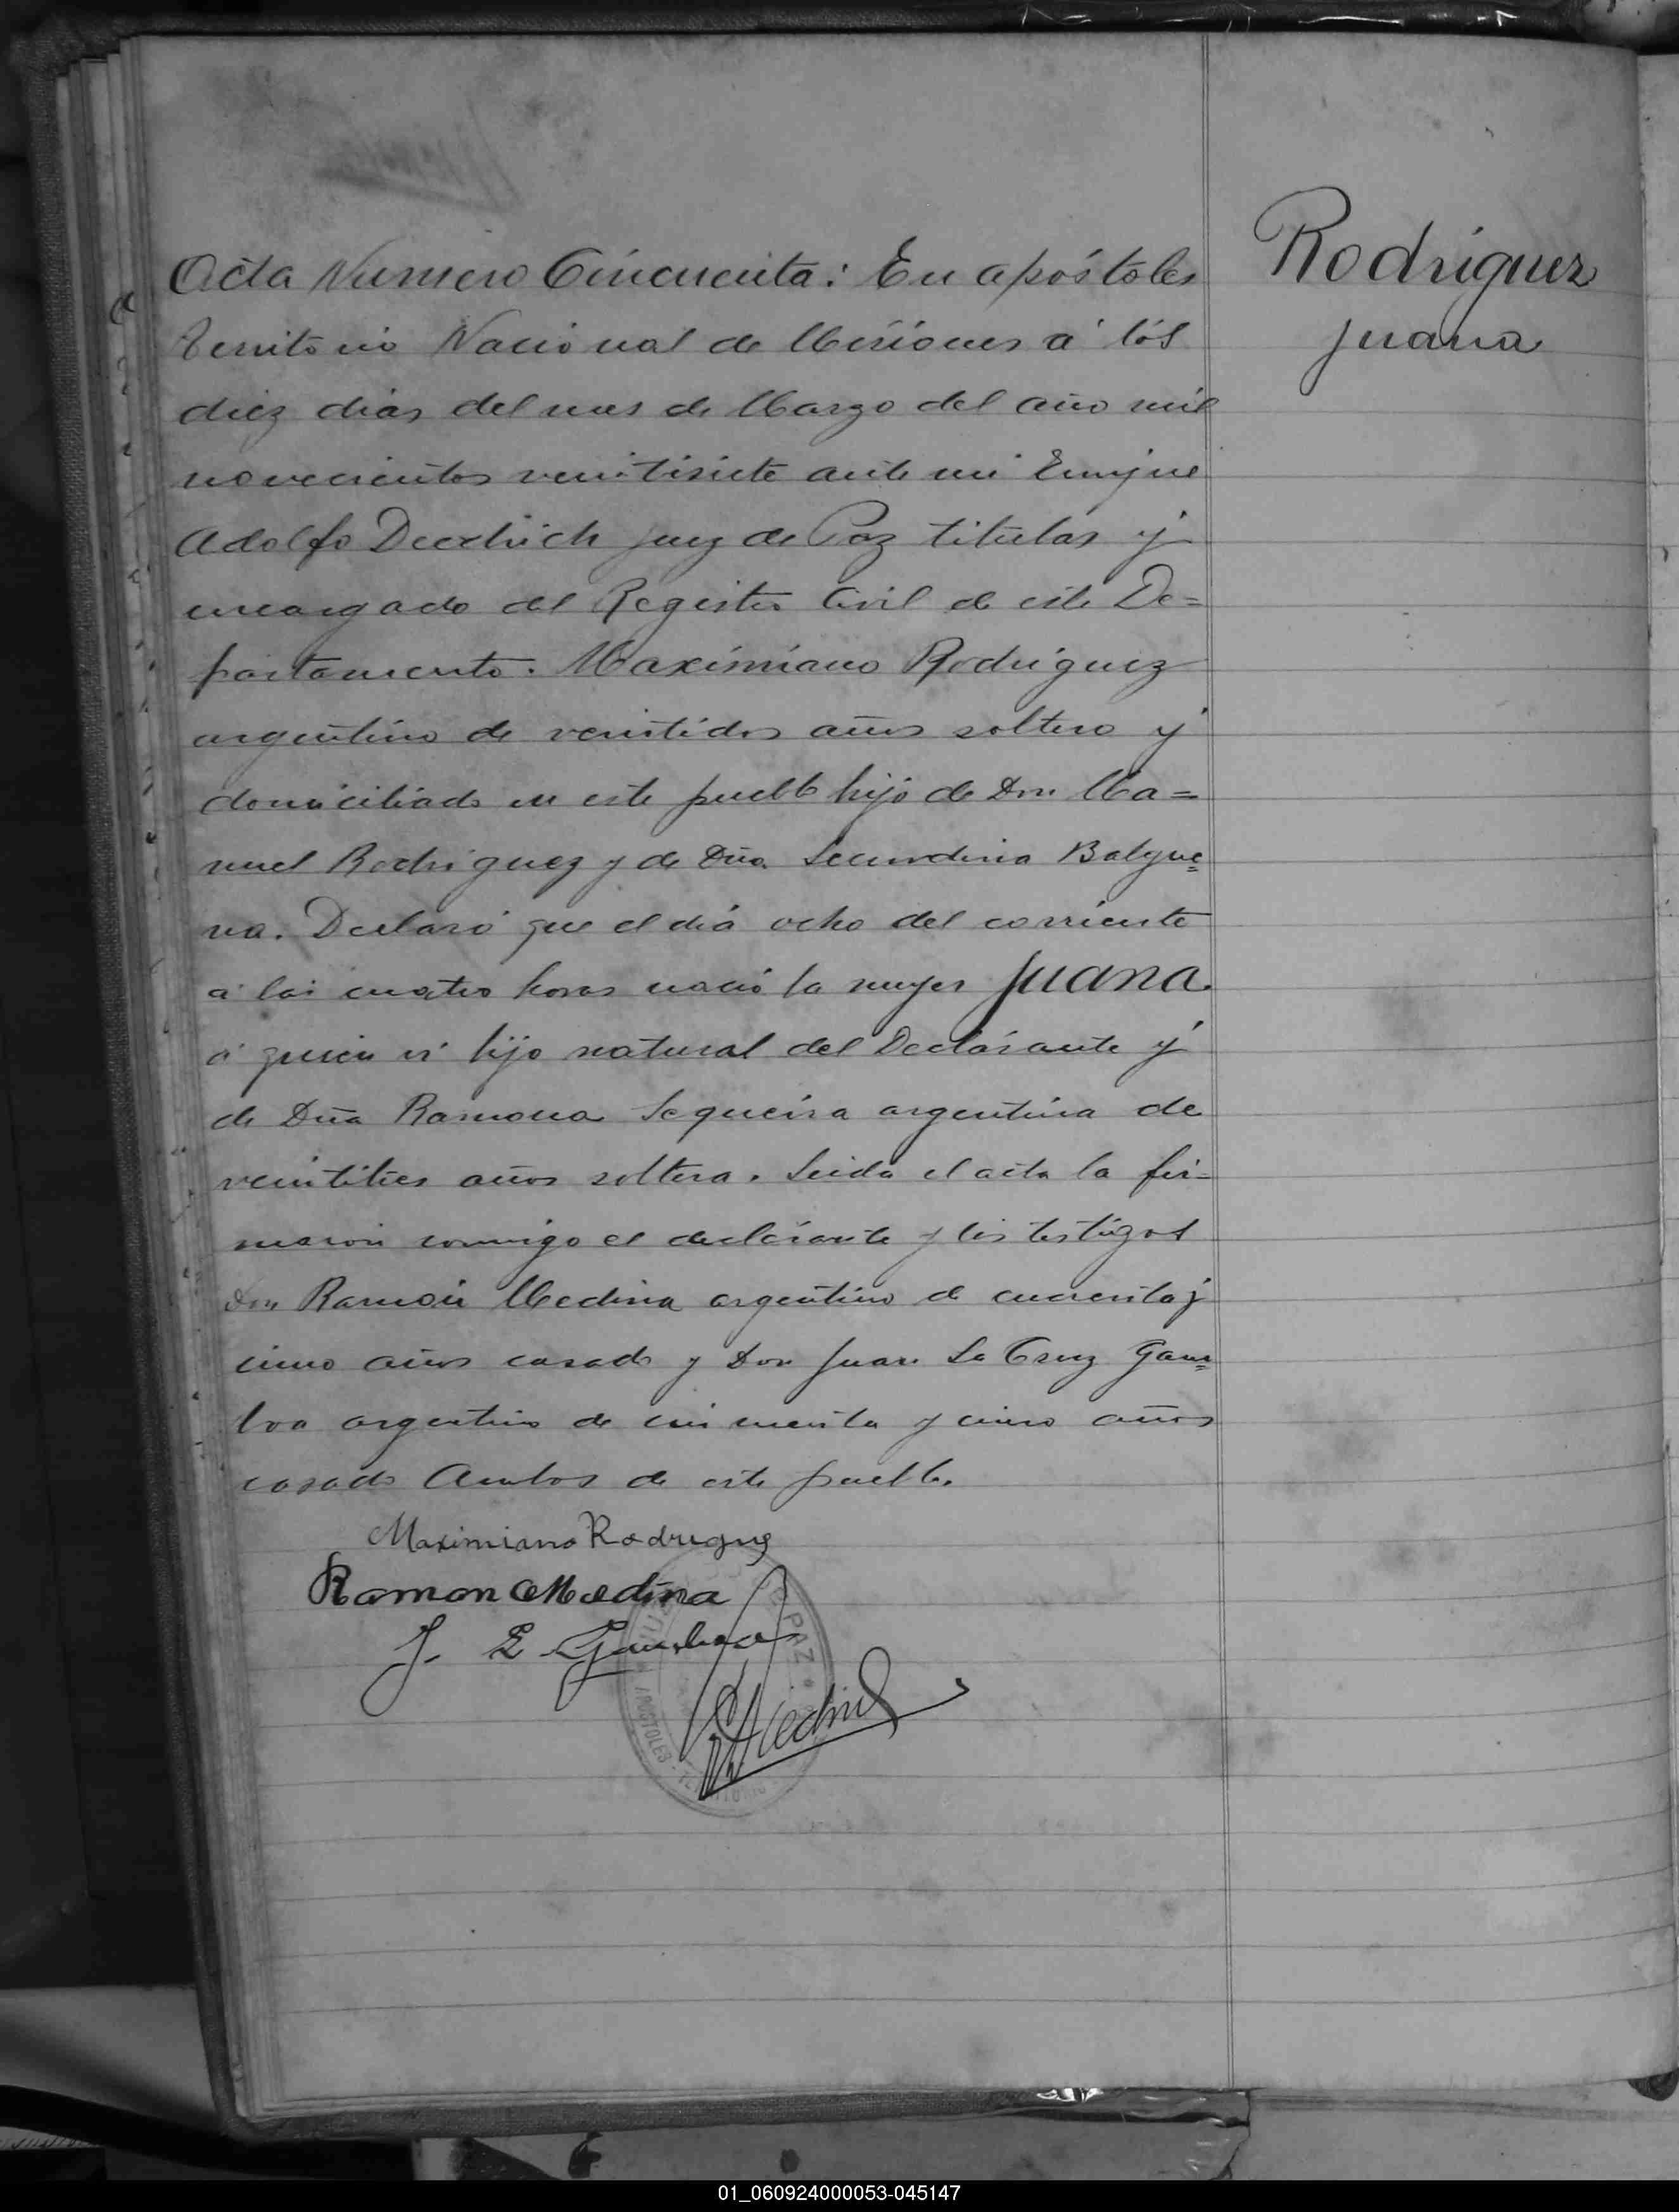 Acta Numero Cincuenta: En apóstoles
Territorio Nacional de Misiones á los
diez dias del mes de Marzo del año mil
novecientos veintisiete ante mi Enrique
Adolfo Diedrich Juez de Paz titular y
encargado del Registro Civil de este De=
partamento. Maximiano Rodriguez
argentino de veintidos años soltero y
domiciliado en este pueblo hijo de Don Ma=
nuel Rodriguez y de Dña Secundina
na. Declaró que el dia ocho del corriente
á las cuatro horas nació la mujer Juana
á quien vi hijo natural del Declarante y
de Dña Ramona Sequeira argentina de
veintitres años soltera. Leida el acta la fir=
maron conmigo el declarante y los testigos
Don Ramón Medina argentino de cuarenta y
cinco años casado y Don Juan La Cruz Gam=
boa argentino de cincuenta y cinco años
casado Ambos de este pueblo.
Maximiano Rodrigue
Ramon Medina
J. L Gamboa
PAZ
APOSTOLES
Rodriguez
Juana
01_060924000053-045147